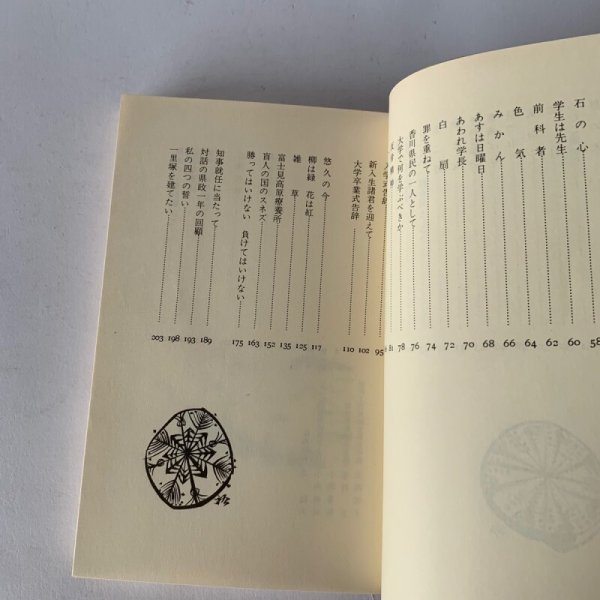 石の心 58
学生は先生 60
前科者 62
色気 64
みかん 66
あすは日曜日 68
あわれ学長 70
白扇 72
罪を重ねて 74
香川県民の一人として 76
大学で何を学ぶべきか 78
81
入学式告辞 95
新入生諸君を迎えて 102
大学卒業式告辞 110
悠久の今 117
柳は緑 花は紅 125
雑草 135
富士見高原療養所 152
盲人の国のスネズ 163
勝ってはいけない 負けてはいけない 175
知事就任に当たって 189
対話の県政一年の回顧 193
私の四つの誓い 198
一里塚を建てたい 203